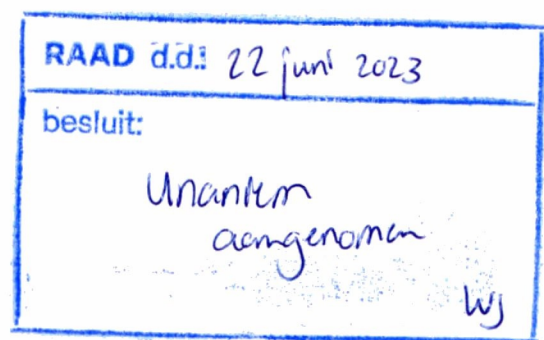 RAAD d.d.: 22 juni 2023
besluit:
Unaniem
aangenomen
WJ